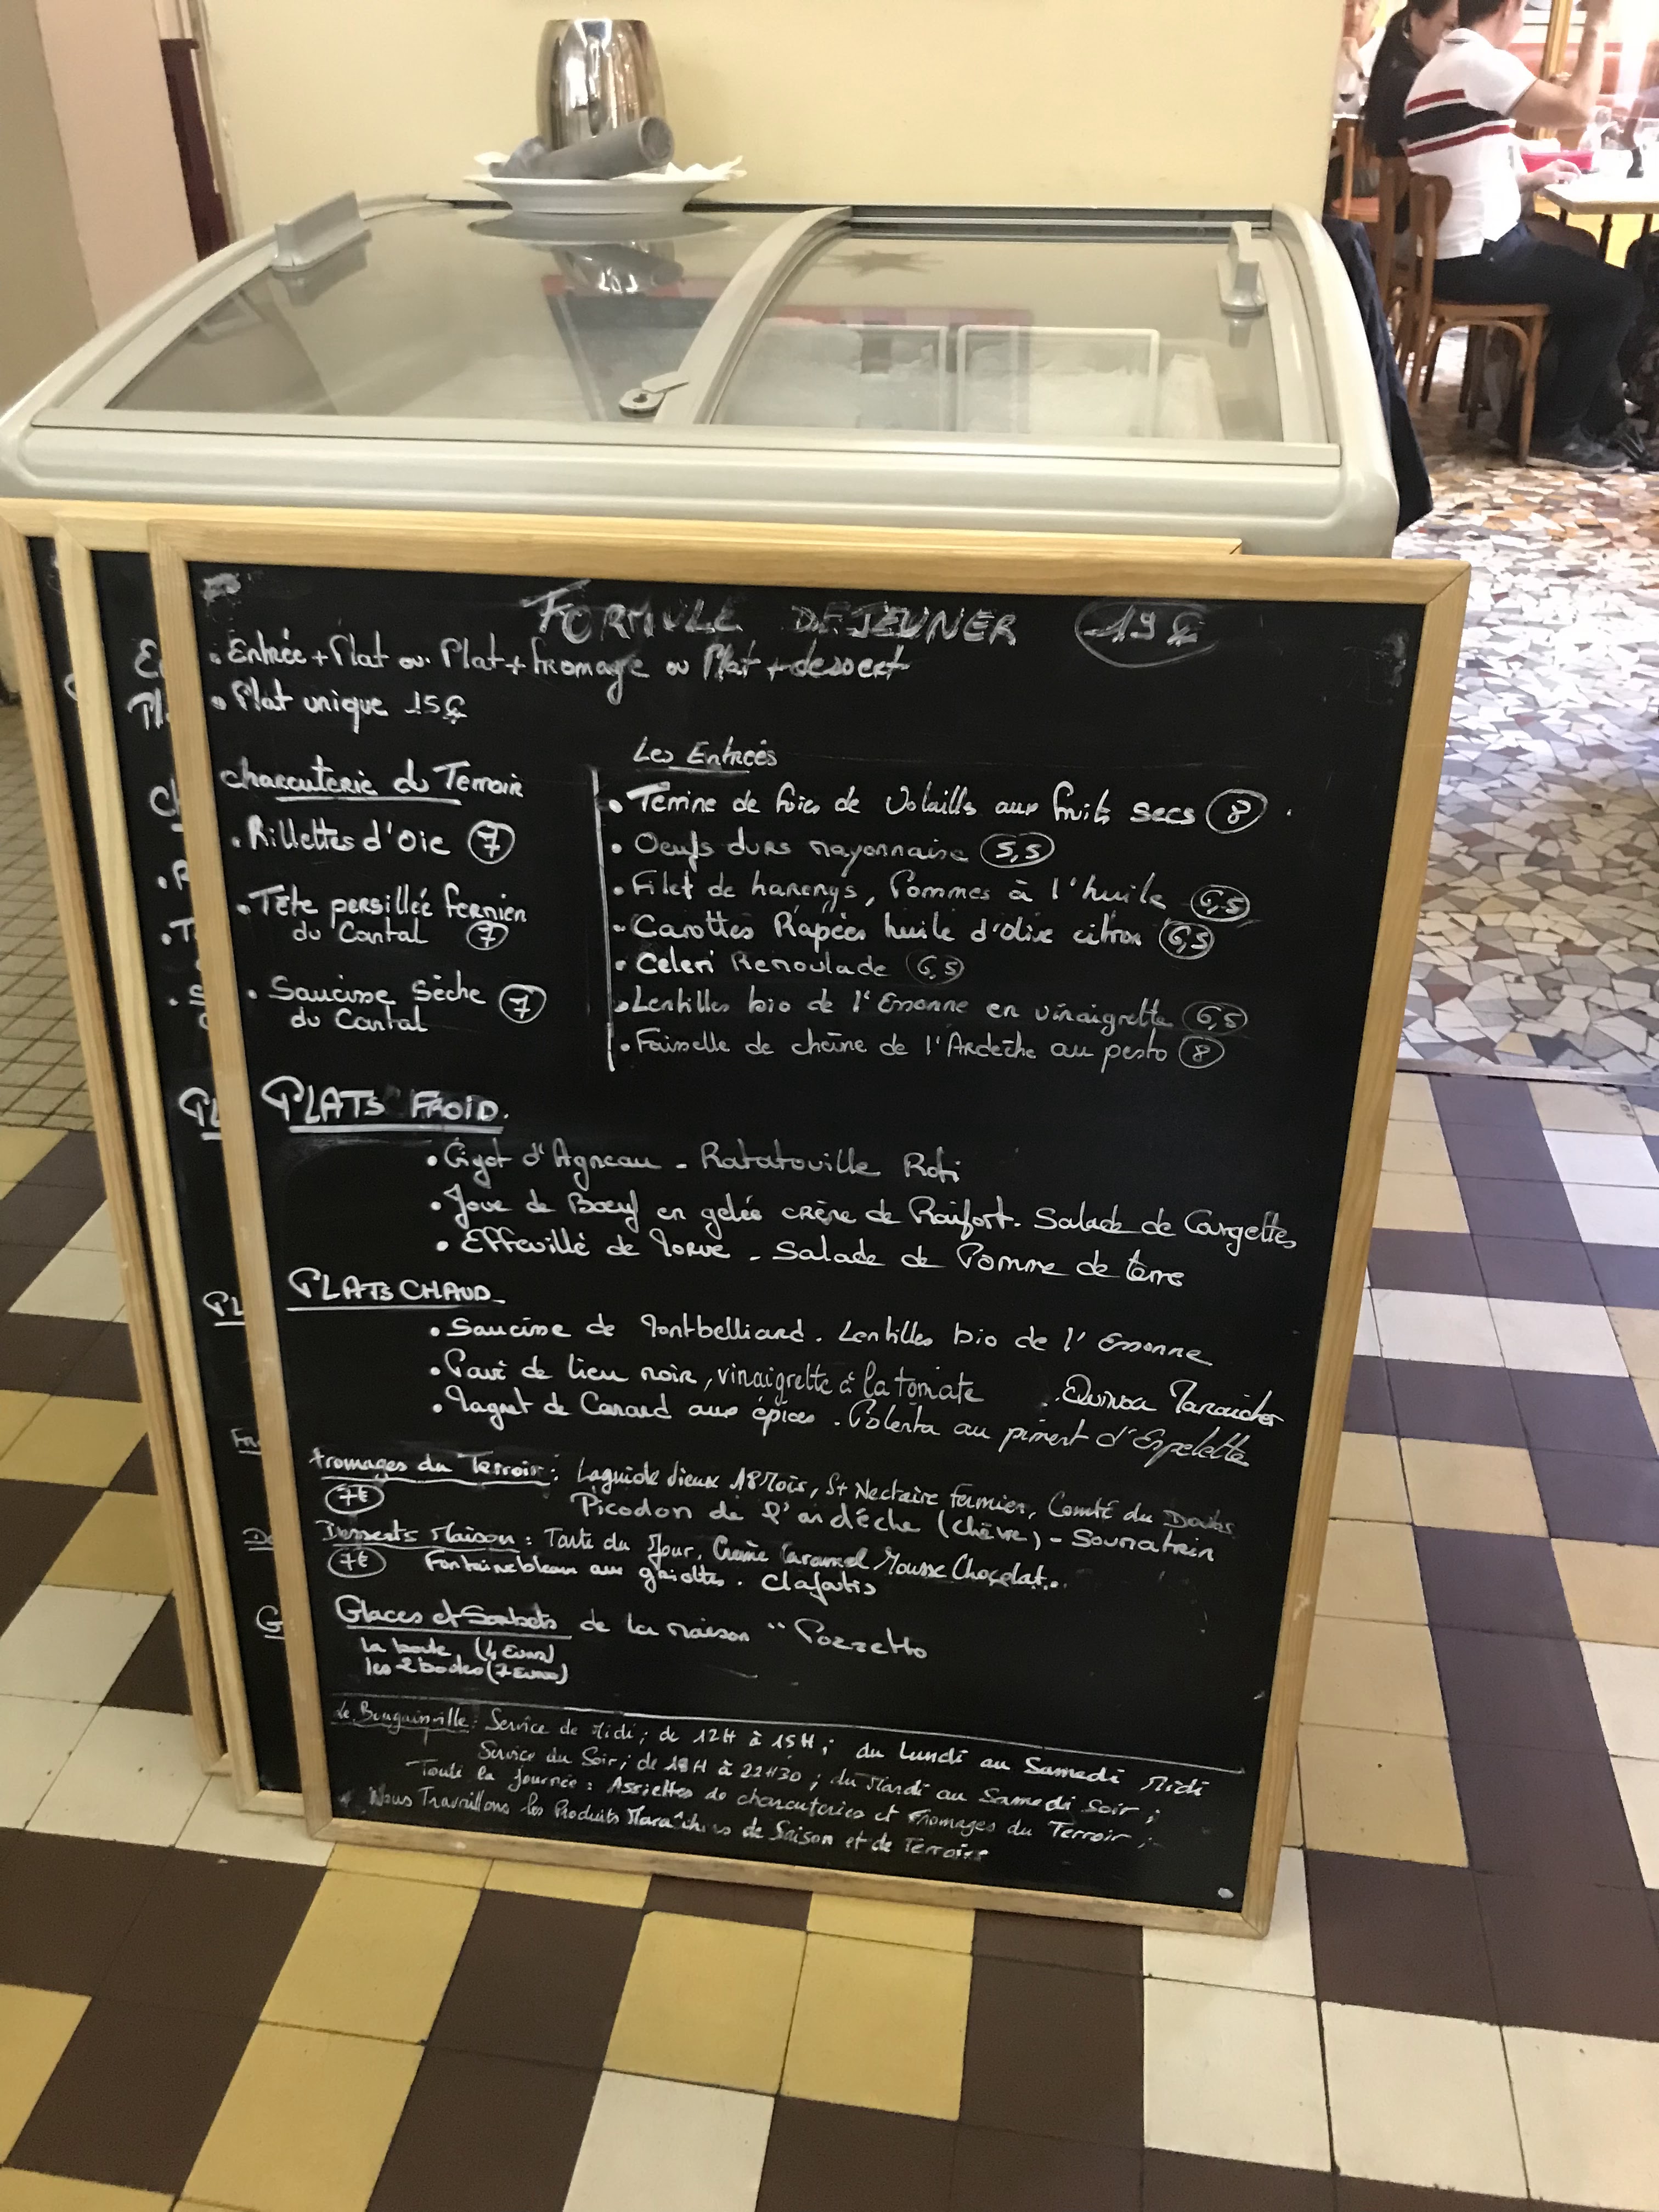 FORMULE DEJEUNER 19€
• Entrée + Plat ou Plat + fromage ou Plat + dessert
• Plat unique 15€
charcuterie du Terroir
• Rillettes d'oie 7
• Tête persillée fermier
du Cantal 7
• Saucisse sèche 7
du Cantal
Les Entrées
• Terrine de foies de Volailles aux fruits secs 8
• Oeufs durs mayonnaise 5,5
• Filet de harengs, Pommes à l'huile 6,5
• Carottes Rapées huile d'olive citron 6,5
• Celeri Remoulade 6,5
• Lentilles bio de l'Essonne en vinaigrette 6,5
• Faisselle de chèvre de l'Ardèche au pesto 8
PLATS FROID.
• Gigot d'Agneau - Ratatouille Roti
• Joue de Boeuf en gelée crème de Raifort. Salade de Courgettes
• Effeuillé de Morue - Salade de Pomme de terre
PLATS CHAUD
• Saucisse de Montbelliard. Lentilles bio de l'Essonne
• Pavé de lieu noir, vinaigrette à la tomate . Quinoa Maraicher
• Magret de Canard aux épices . Polenta au piment d'Espelette
Fromages du Terroir : Laguiole Vieux 18 Mois, St Nectaire fermier, Comté du Doubs
7€ Picodon de l'ardéche (chèvre) -
Desserts Maison : Tarte du Jour, Crème Caramel Mousse Chocolat..
7€ Fontainebleau aux griottes . Clafoutis
Glaces et Sorbets de la maison "Pozzetto
la boule (4 Euros)
les 2 boules (7 Euros)
Le Bougainville : Service de Midi ; de 12H à 15H ; du Lundi au Samedi Midi
Service du Soir ; de 18H à 22H30 ; du Mardi au Samedi Soir ;
Toute la journée : Assiettes de charcuteries et Fromages du Terroir ;
Nous Travaillons les Produits Maraîchers de Saison et de Terroirs